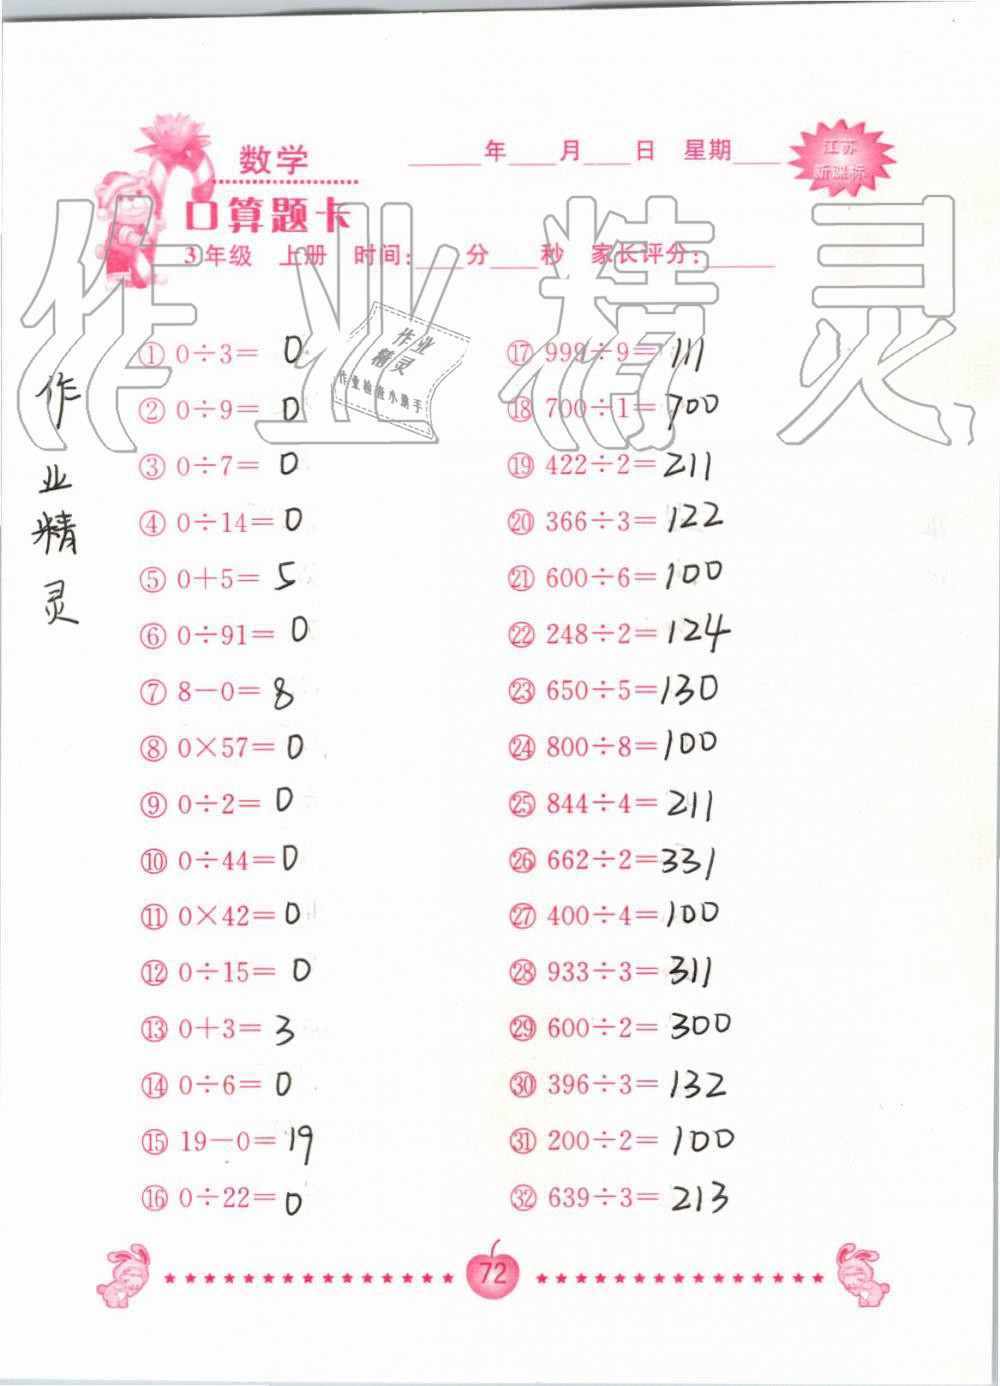 数学
口算题卡
____年____月____日 星期____
江苏
新课标
3年级 上册 时间:____分____秒 家长评分:______
作业精灵
作业
精灵
作业检查小助手
作业精灵
① 0÷3= 0
② 0÷9= 0
③ 0÷7= 0
④ 0÷14= 0
⑤ 0+5= 5
⑥ 0÷91= 0
⑦ 8-0= 8
⑧ 0×57= 0
⑨ 0÷2= 0
⑩ 0÷44= 0
⑪ 0×42= 0
⑫ 0÷15= 0
⑬ 0+3= 3
⑭ 0÷6= 0
⑮ 19-0= 19
⑯ 0÷22= 0
⑰ 999÷9= 111
⑱ 700÷1= 700
⑲ 422÷2= 211
⑳ 366÷3= 122
㉑ 600÷6= 100
㉒ 248÷2= 124
㉓ 650÷5= 130
㉔ 800÷8= 100
㉕ 844÷4= 211
㉖ 662÷2= 331
㉗ 400÷4= 100
㉘ 933÷3= 311
㉙ 600÷2= 300
㉚ 396÷3= 132
㉛ 200÷2= 100
㉜ 639÷3= 213
72